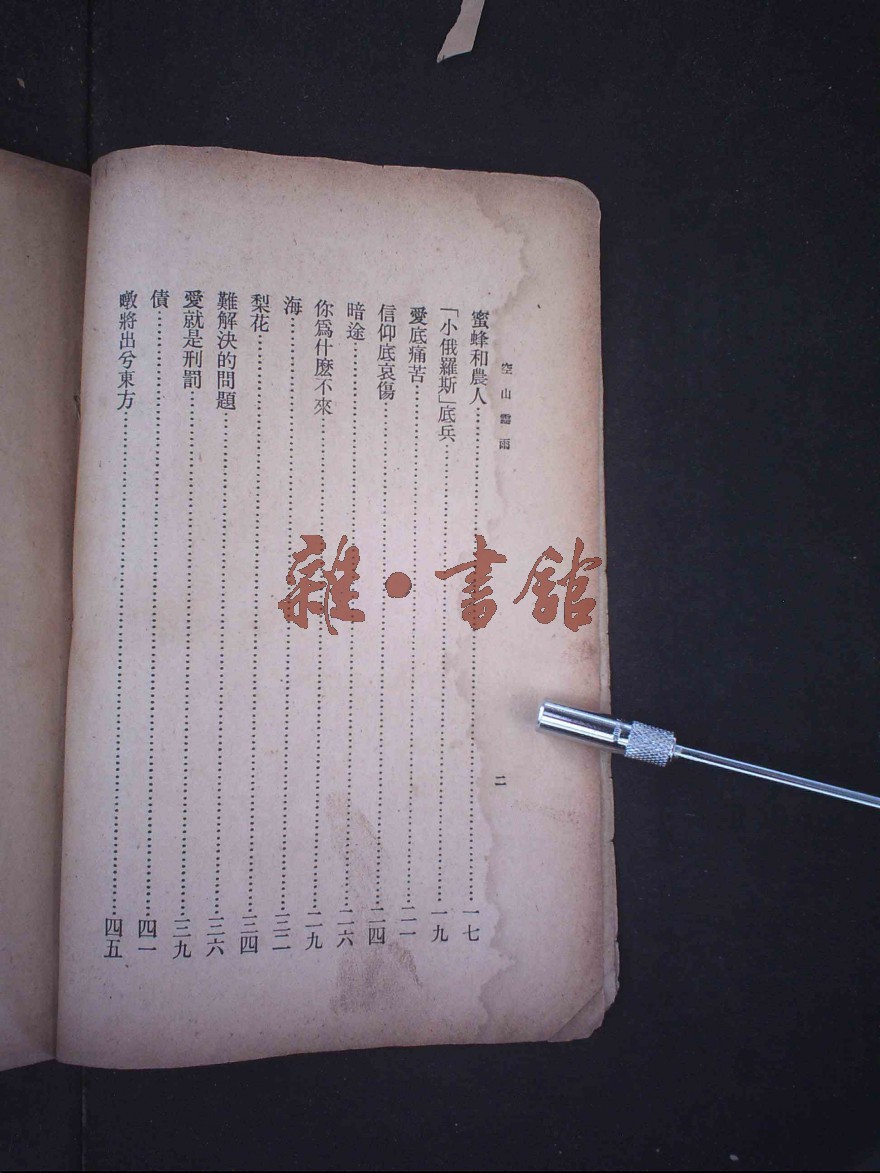 空山靈雨
二
蜜蜂和農人……一七
「小俄羅斯」底兵……一九
愛底痛苦……二一
信仰底哀傷……二四
暗途……二六
你爲什麽不來……二九
海……三二
梨花……三四
難解決的問題……三六
愛就是刑罰……三九
債……四一
暾將出兮東方……四五
雜·書館